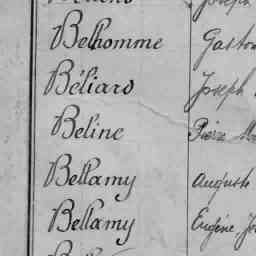 Belhomme Gaston
Béliard Joseph
Beline Pierre
Bellamy Auguste
Bellamy Eugène, Jo